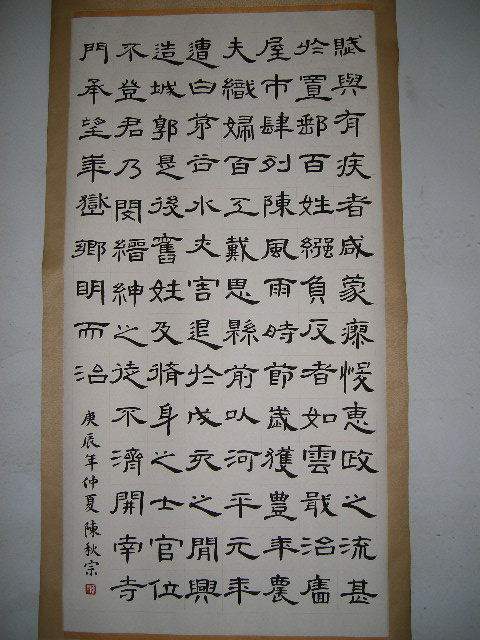 賦與有疾者咸蒙瘳悛惠政之流甚
於置郵百姓繦負反者如雲戢治廧
屋市肆列陳風雨時節歲獲豐年農
夫織婦百工戴恩縣前以河平元年
遭白茅谷水灾害退於戌亥之間興
造城郭是後舊姓及脩身之士官位
不登君乃閔縉紳之徒不濟開南寺
門承望華嶽鄉明而治
庚辰年仲夏陳秋宗